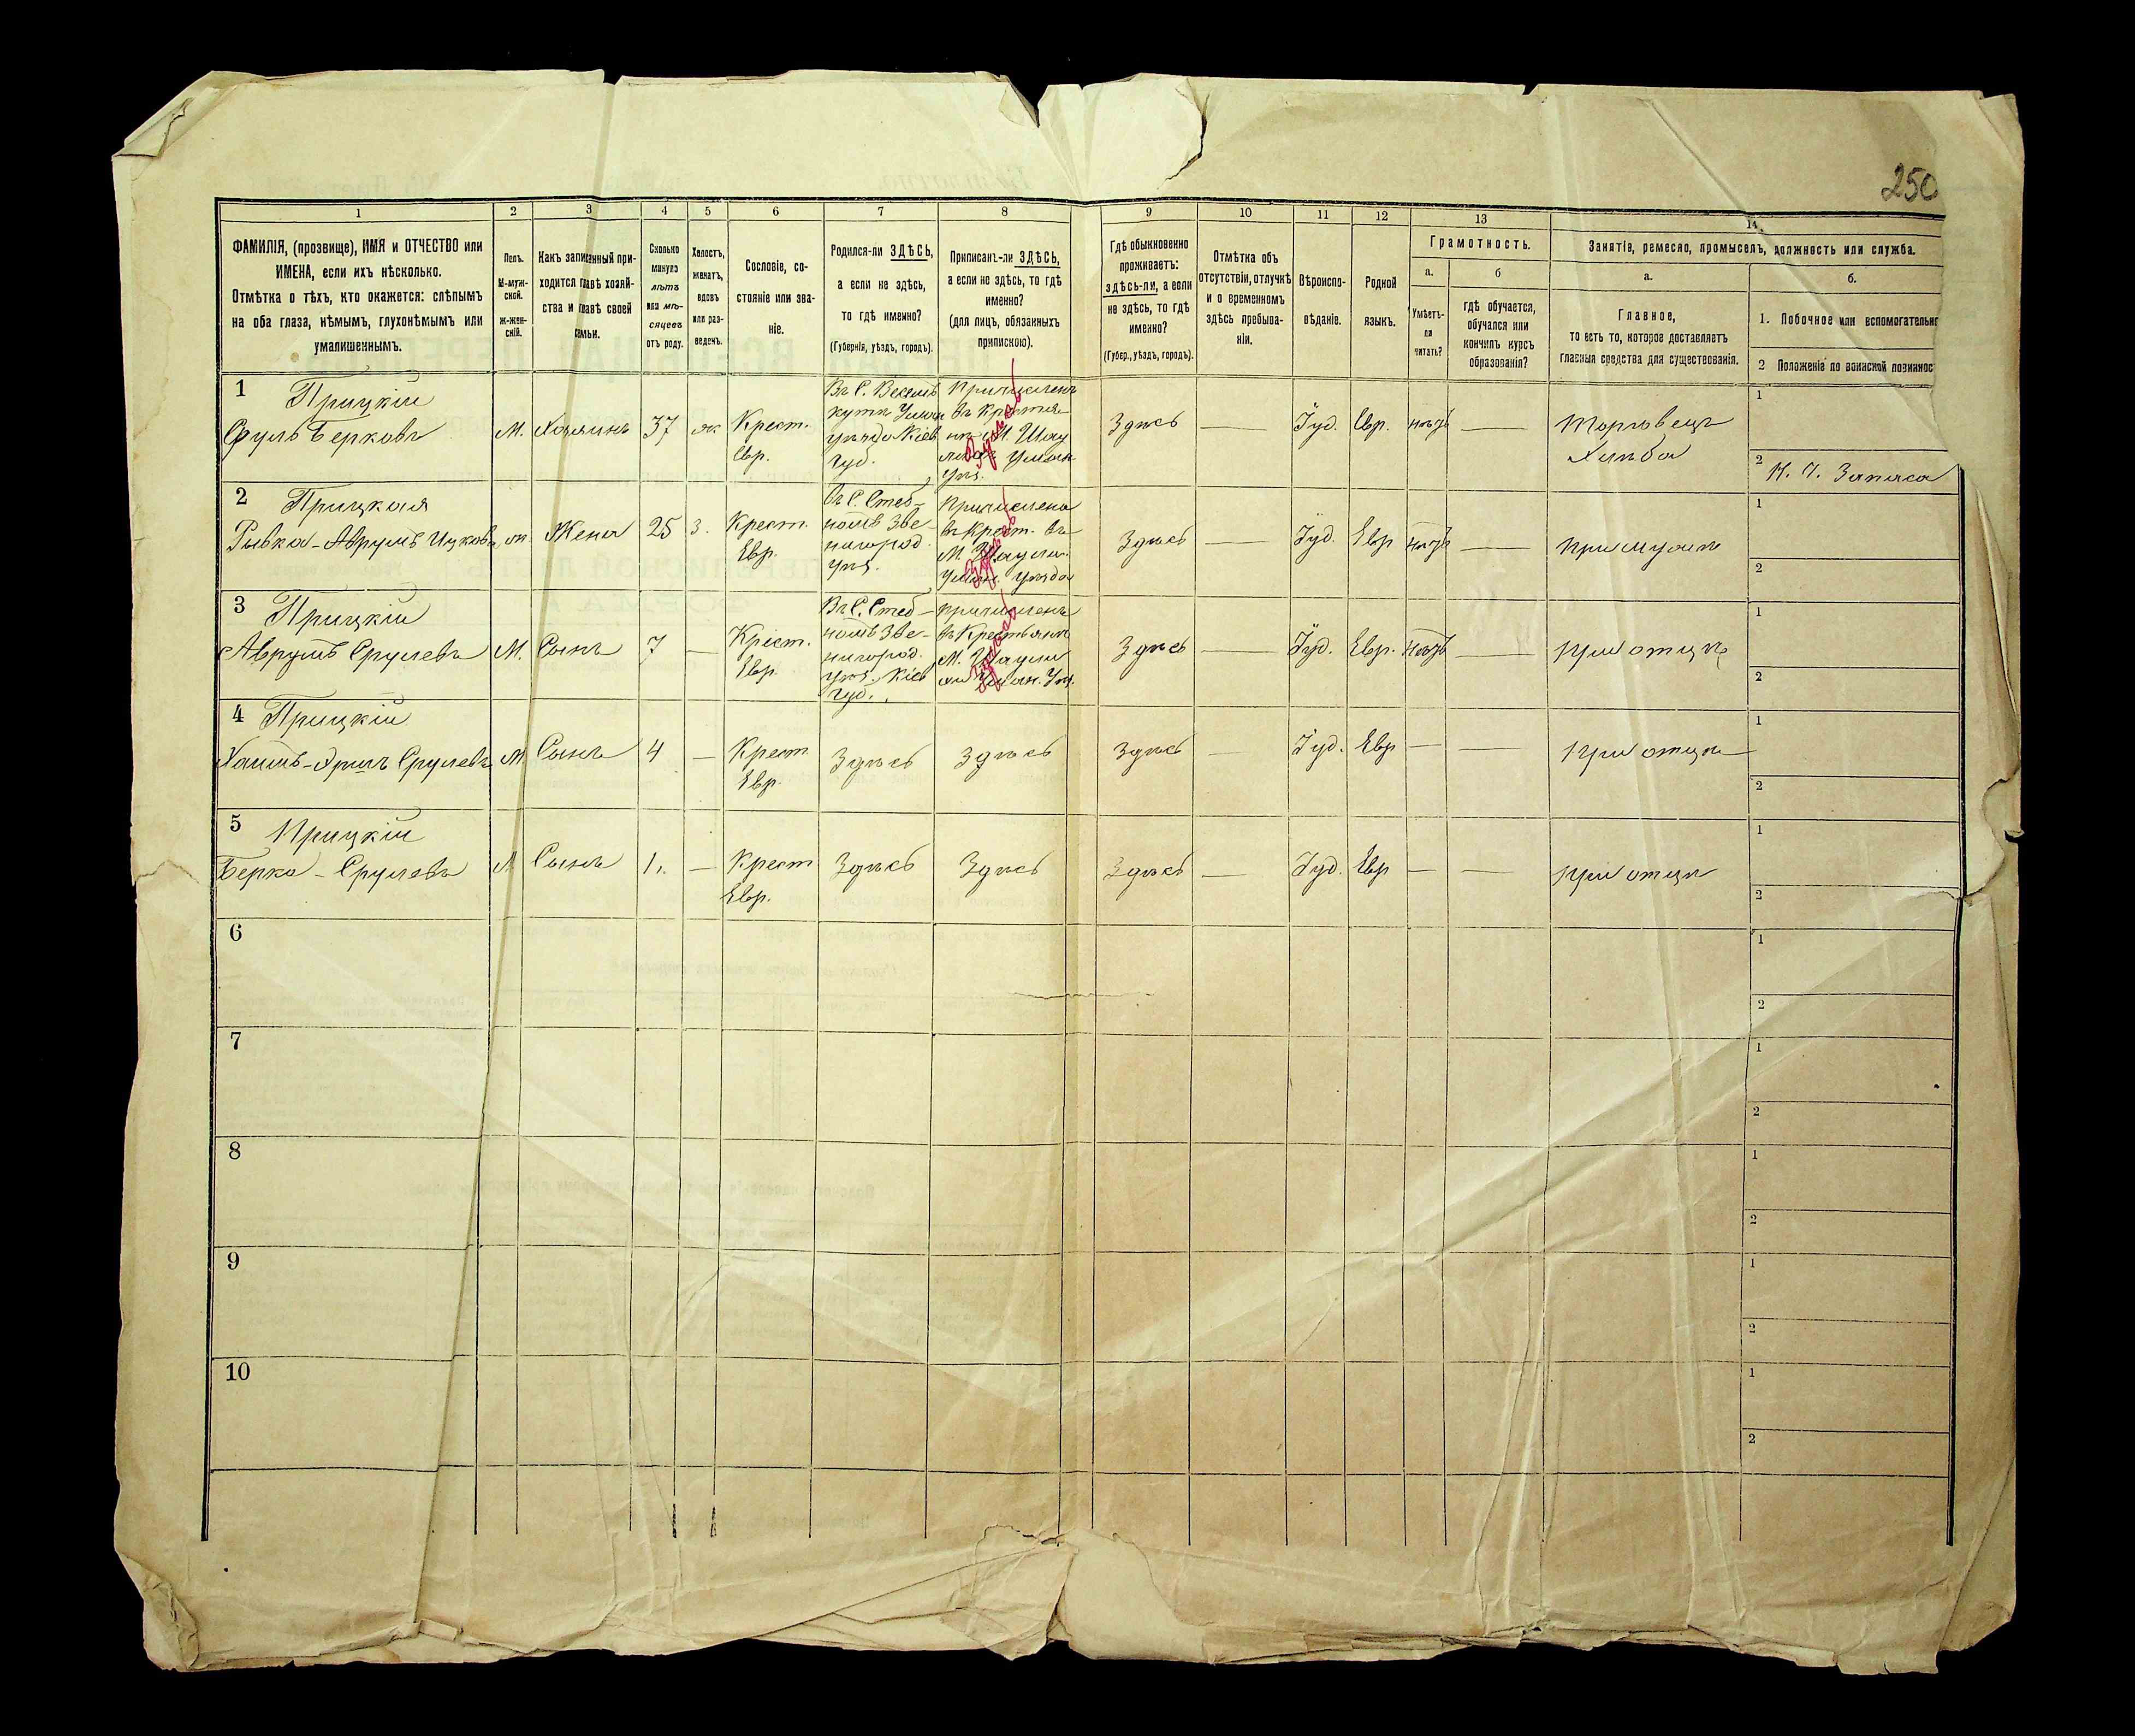 250
1
2
3
4
5
6
7
8
9
10
11
12
13
14
ФАМИЛІЯ, (прозвище), ИМЯ и ОТЧЕСТВО или
ИМЕНА, если ихъ нѣсколько.
Отмѣтка о тѣхъ, кто окажется: слѣпымъ
на оба глаза, нѣмымъ, глухонѣмымъ или
умалишеннымъ.
Полъ.
М-муж-
ской.
ж-жен-
скій.
Какъ записанный при-
ходится главѣ хозяй-
ства и главѣ своей
семьи.
Сколько
минуло
лѣтъ
или мѣ-
сяцевъ
отъ роду.
Холостъ,
женатъ,
вдовъ
или раз-
веденъ.
Сословіе, со-
стояніе или зва-
ніе.
Родился-ли ЗДѢСЬ,
а если не здѣсь,
то гдѣ именно?
(Губернія, уѣздъ, городъ).
Приписанъ-ли ЗДѢСЬ,
а если не здѣсь, то гдѣ
именно?
(для лицъ, обязанныхъ
припискою).
Гдѣ обыкновенно
проживаетъ:
здѣсь-ли, а если
не здѣсь, то гдѣ
именно?
(Губер., уѣздъ, городъ).
Отмѣтка объ
отсутствіи, отлучкѣ
и о временномъ
здѣсь пребыва-
ніи.
Вѣроиспо-
вѣданіе.
Родной
языкъ.
Грамотность.
а.
б
Умѣетъ-
ли
читать?
гдѣ обучается,
обучался или
кончилъ курсъ
образованія?
Занятіе, ремесло, промыселъ, должность или служба.
а.
б.
Главное,
то есть то, которое доставляетъ
главныя средства для существованія.
1. Побочное или вспомогательн
2 Положеніе по воинской повиннос
1 Прицкій
Сруль Берковъ
М. Хозяинъ 37 ж Крест.
Евр.
Въ С. Веселъ
кутъ Уман
уѣзда Кіев
Губ.
Причисленъ
въ Крестья
Уман.
Здѣсь
Здѣсь — Іуд. Евр. нѣтъ —
Торговецъ
Хлѣба
1
2 Н. Ч. Запаса
2 Прицкая
Рывка-Аврумъ Ицкова
ж Жена 25 з. Крест.
Евр.
Въ С. Стеб-
номъ Зве-
нигород.
уѣз.
Причислена
въ Крест. въ
Уман. уѣзда
Здѣсь
Здѣсь — Іуд. Евр нѣтъ —
При мужѣ
1
2
3 Прицкій
Аврумъ Срулевъ М. Сынъ 7 — Крест.
Евр.
Въ С. Стеб-
номъ Зве-
нигород.
уѣз. Кіев
Губ.
причисленъ
въ Крестьяне
Уман. Уѣз.
Здѣсь
Здѣсь — Іуд. Евр. нѣтъ —
при отцѣ
1
2
4 Прицкій
Хаимъ-Эршъ Срулевъ М Сынъ 4 — Крест
Евр.
Здѣсь Здѣсь Здѣсь — Іуд. Евр — —
при отцѣ
1
2
5 Прицкій
Берко-Срулевъ М Сынъ 1. — Крест
Евр.
Здѣсь Здѣсь Здѣсь — Іуд. Евр — —
при отцѣ
1
2
6
1
2
7
1
2
8
1
2
9
1
2
10
1
2